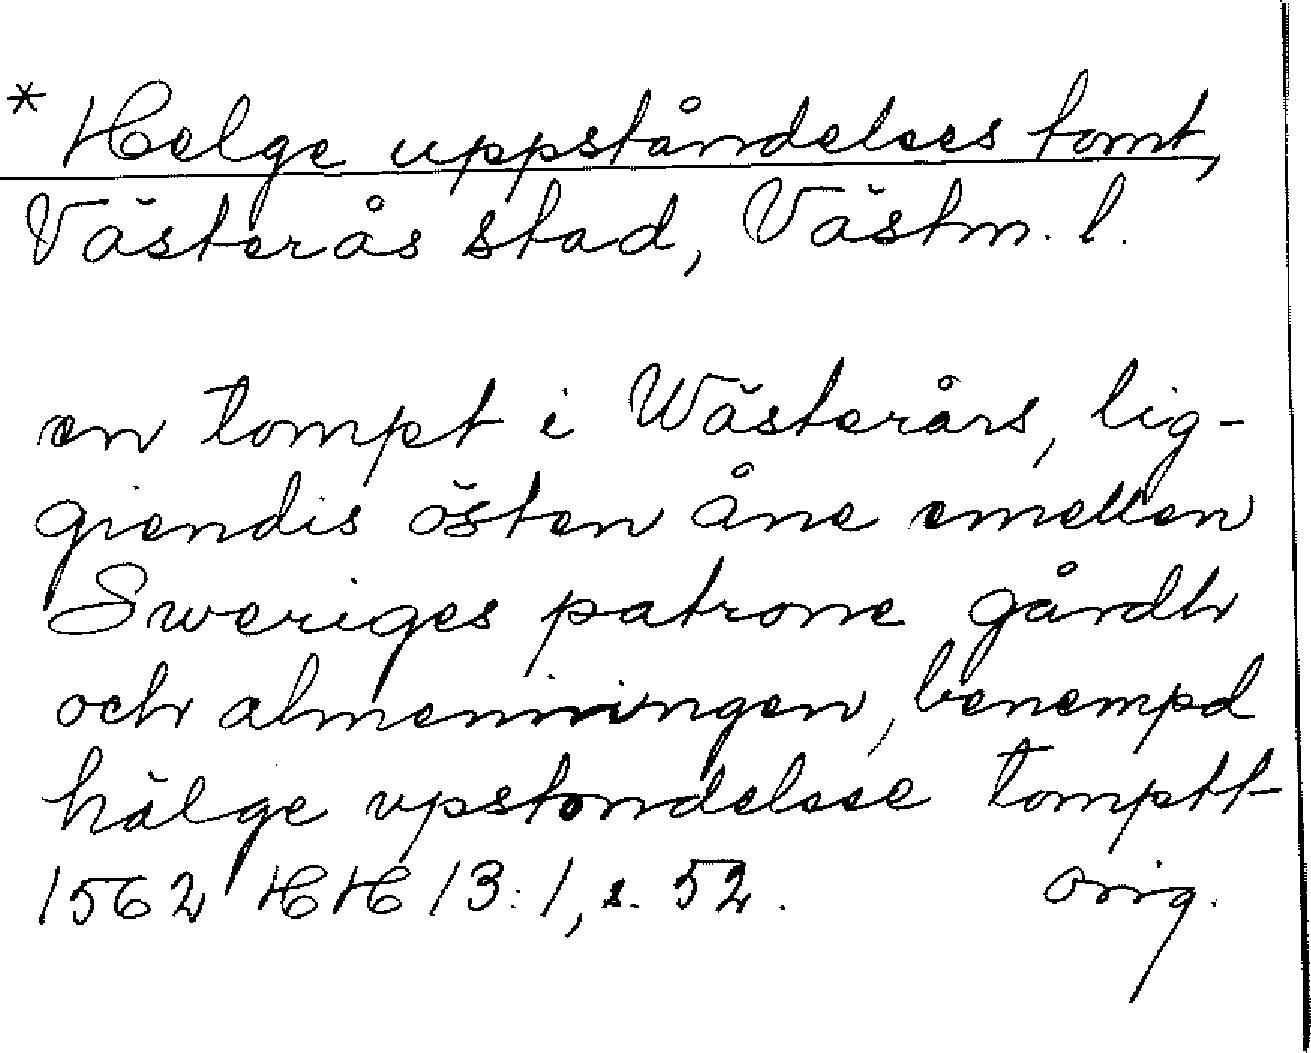 * Helge uppståndelses tomt,
Västerås stad, Västm. l.
en tompt i Wästerårs, lig-
giendis östen åne emellen
Sweriges patrone gårdh
och almenningen, benempd
hälge vpstondelsse tomptt
1562 HH 13:1, s. 52. orig.